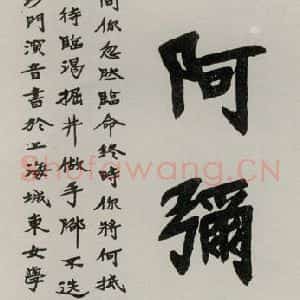 阿彌
問你忽然臨命終時你將何抵
待臨渴掘井做手腳不迭
門演音書於上海城東女學
Shufawang.CN